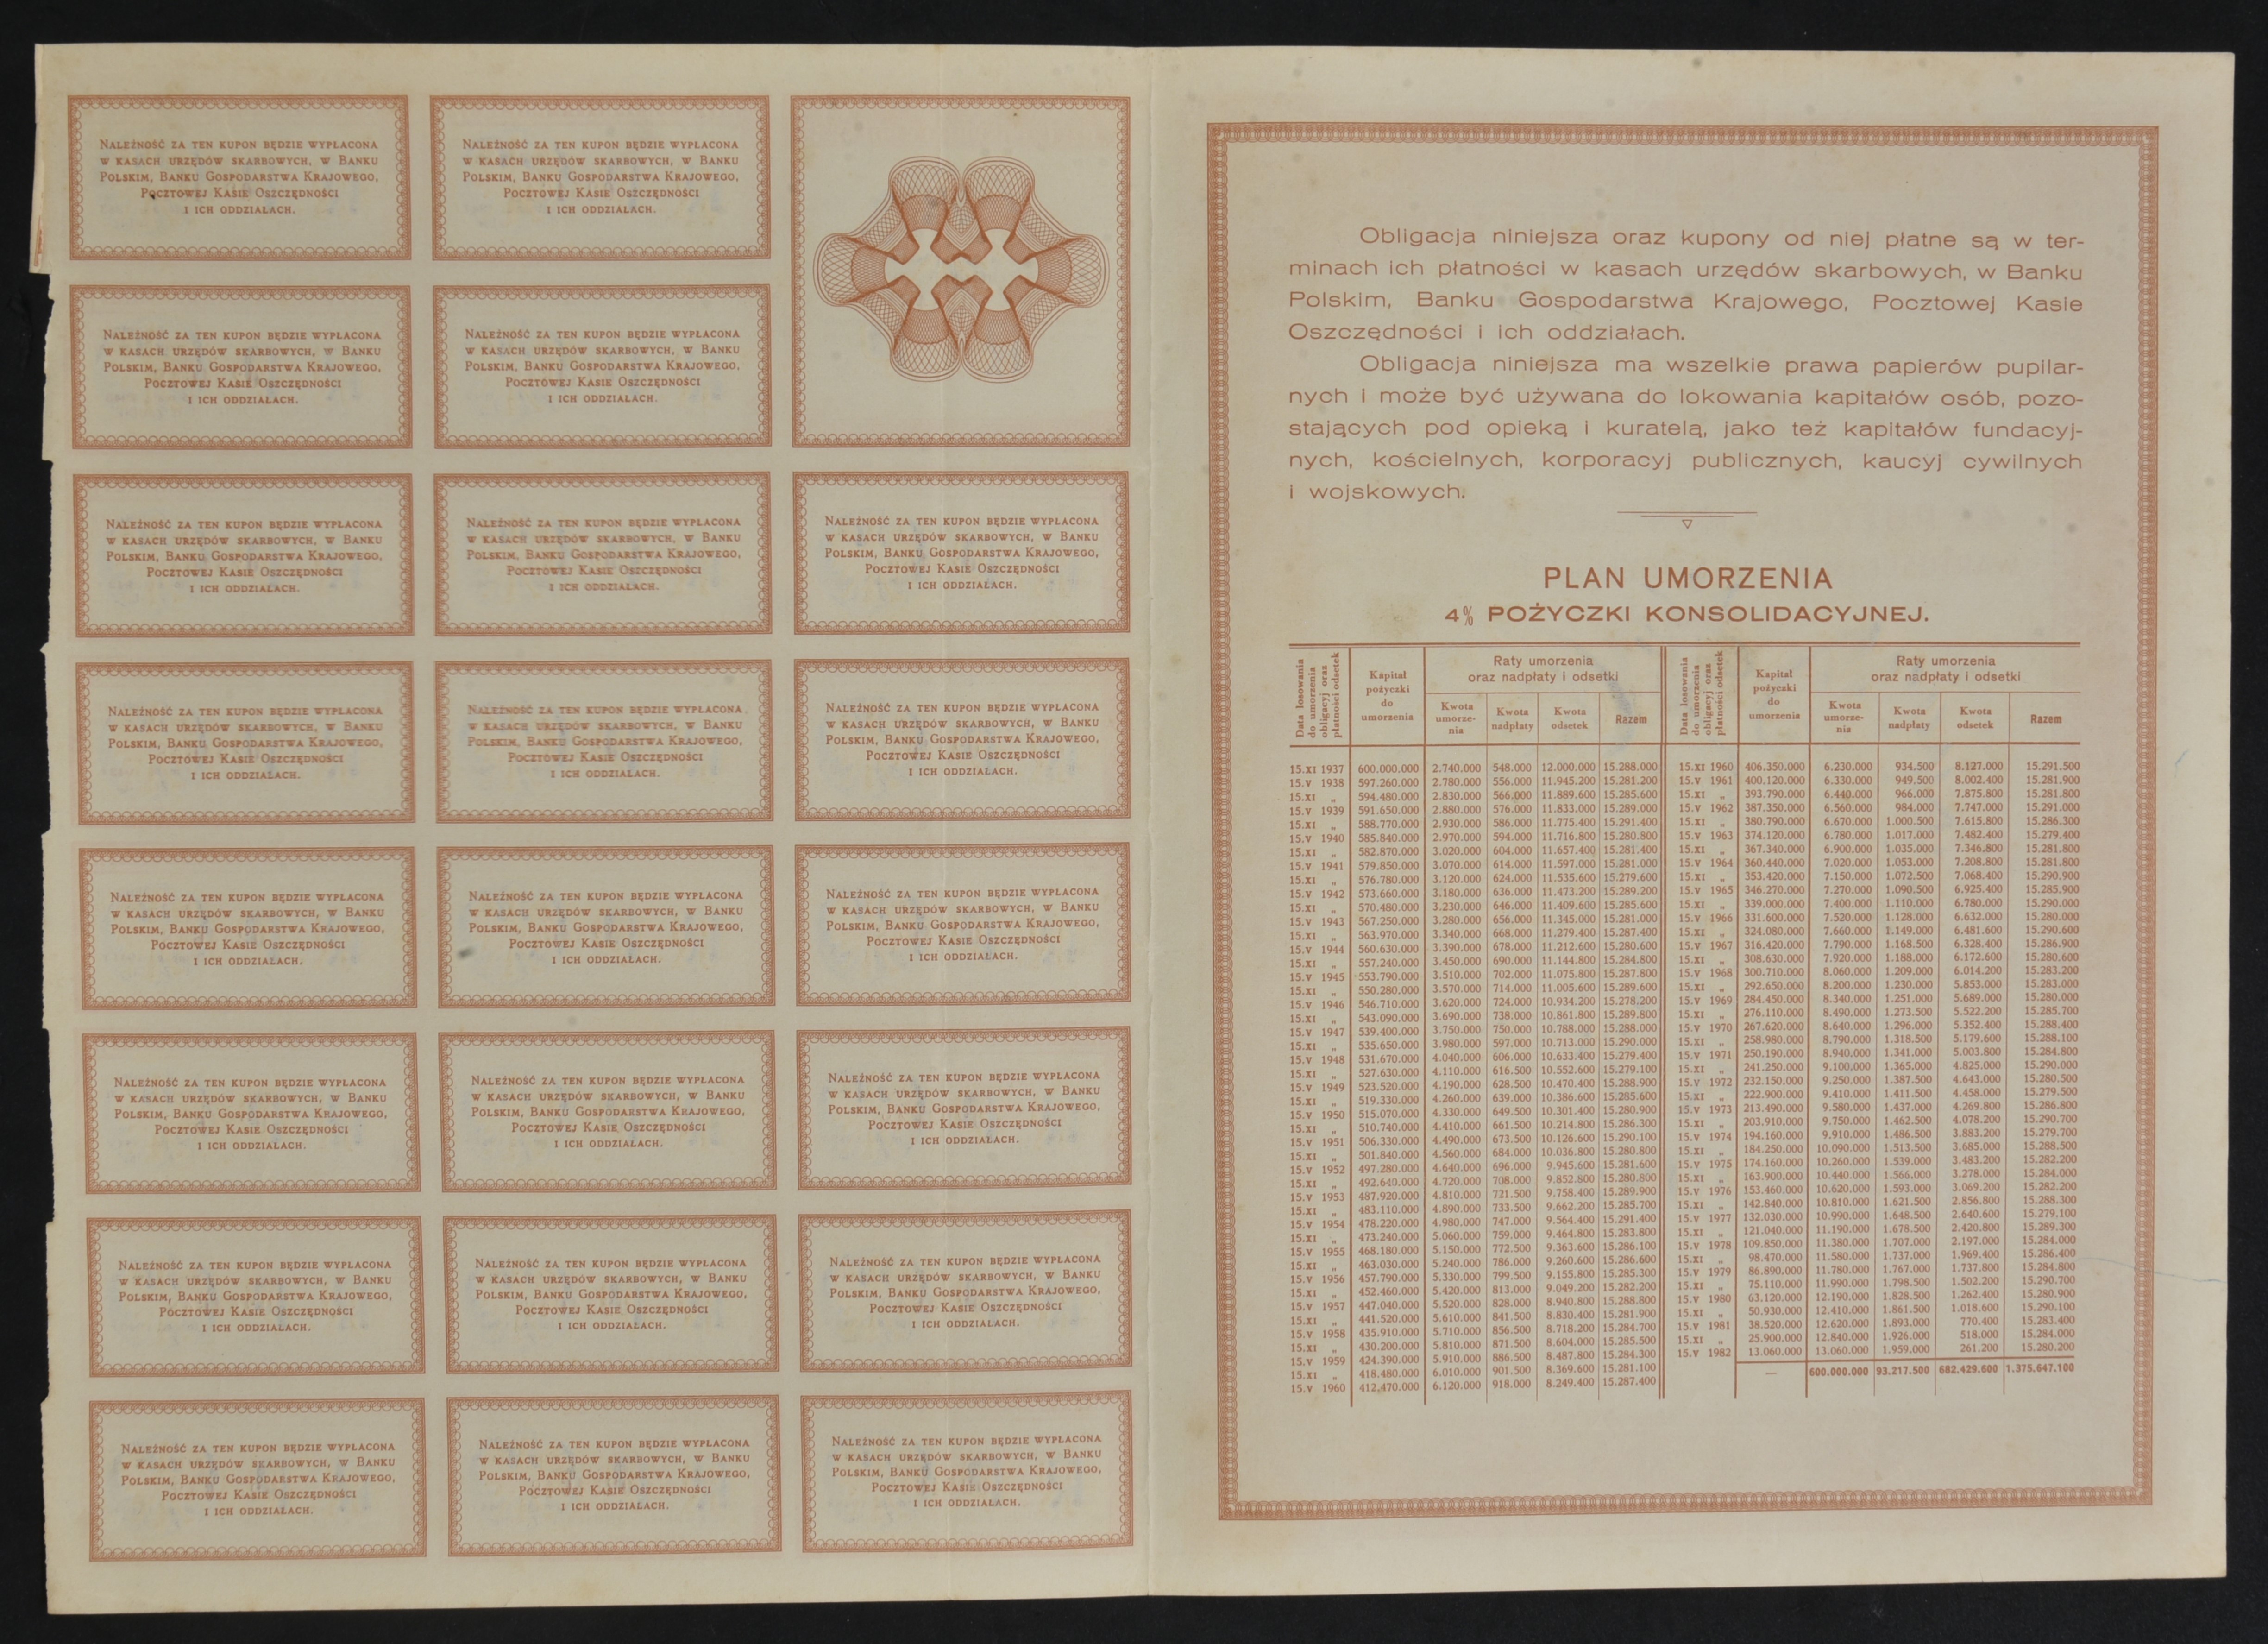 NALEŻNOŚĆ ZA TEN KUPON BĘDZIE WYPŁACONA
W KASACH URZĘDÓW SKARBOWYCH, W BANKU
POLSKIM, BANKU GOSPODARSTWA KRAJOWEGO,
POCZTOWEJ KASIE OSZCZĘDNOŚCI
I ICH ODDZIAŁACH.
NALEŻNOŚĆ ZA TEN KUPON BĘDZIE WYPŁACONA
W KASACH URZĘDÓW SKARBOWYCH, W BANKU
POLSKIM, BANKU GOSPODARSTWA KRAJOWEGO,
POCZTOWEJ KASIE OSZCZĘDNOŚCI
I ICH ODDZIAŁACH.
NALEŻNOŚĆ ZA TEN KUPON BĘDZIE WYPŁACONA
W KASACH URZĘDÓW SKARBOWYCH, W BANKU
POLSKIM, BANKU GOSPODARSTWA KRAJOWEGO,
POCZTOWEJ KASIE OSZCZĘDNOŚCI
I ICH ODDZIAŁACH.
NALEŻNOŚĆ ZA TEN KUPON BĘDZIE WYPŁACONA
W KASACH URZĘDÓW SKARBOWYCH, W BANKU
POLSKIM, BANKU GOSPODARSTWA KRAJOWEGO,
POCZTOWEJ KASIE OSZCZĘDNOŚCI
I ICH ODDZIAŁACH.
NALEŻNOŚĆ ZA TEN KUPON BĘDZIE WYPŁACONA
W KASACH URZĘDÓW SKARBOWYCH, W BANKU
POLSKIM, BANKU GOSPODARSTWA KRAJOWEGO,
POCZTOWEJ KASIE OSZCZĘDNOŚCI
I ICH ODDZIAŁACH.
NALEŻNOŚĆ ZA TEN KUPON BĘDZIE WYPŁACONA
W KASACH URZĘDÓW SKARBOWYCH, W BANKU
POLSKIM, BANKU GOSPODARSTWA KRAJOWEGO,
POCZTOWEJ KASIE OSZCZĘDNOŚCI
I ICH ODDZIAŁACH.
NALEŻNOŚĆ ZA TEN KUPON BĘDZIE WYPŁACONA
W KASACH URZĘDÓW SKARBOWYCH, W BANKU
POLSKIM, BANKU GOSPODARSTWA KRAJOWEGO,
POCZTOWEJ KASIE OSZCZĘDNOŚCI
I ICH ODDZIAŁACH.
NALEŻNOŚĆ ZA TEN KUPON BĘDZIE WYPŁACONA
W KASACH URZĘDÓW SKARBOWYCH, W BANKU
POLSKIM, BANKU GOSPODARSTWA KRAJOWEGO,
POCZTOWEJ KASIE OSZCZĘDNOŚCI
I ICH ODDZIAŁACH.
NALEŻNOŚĆ ZA TEN KUPON BĘDZIE WYPŁACONA
W KASACH URZĘDÓW SKARBOWYCH, W BANKU
POLSKIM, BANKU GOSPODARSTWA KRAJOWEGO,
POCZTOWEJ KASIE OSZCZĘDNOŚCI
I ICH ODDZIAŁACH.
NALEŻNOŚĆ ZA TEN KUPON BĘDZIE WYPŁACONA
W KASACH URZĘDÓW SKARBOWYCH, W BANKU
POLSKIM, BANKU GOSPODARSTWA KRAJOWEGO,
POCZTOWEJ KASIE OSZCZĘDNOŚCI
I ICH ODDZIAŁACH.
NALEŻNOŚĆ ZA TEN KUPON BĘDZIE WYPŁACONA
W KASACH URZĘDÓW SKARBOWYCH, W BANKU
POLSKIM, BANKU GOSPODARSTWA KRAJOWEGO,
POCZTOWEJ KASIE OSZCZĘDNOŚCI
I ICH ODDZIAŁACH.
NALEŻNOŚĆ ZA TEN KUPON BĘDZIE WYPŁACONA
W KASACH URZĘDÓW SKARBOWYCH, W BANKU
POLSKIM, BANKU GOSPODARSTWA KRAJOWEGO,
POCZTOWEJ KASIE OSZCZĘDNOŚCI
I ICH ODDZIAŁACH.
NALEŻNOŚĆ ZA TEN KUPON BĘDZIE WYPŁACONA
W KASACH URZĘDÓW SKARBOWYCH, W BANKU
POLSKIM, BANKU GOSPODARSTWA KRAJOWEGO,
POCZTOWEJ KASIE OSZCZĘDNOŚCI
I ICH ODDZIAŁACH.
NALEŻNOŚĆ ZA TEN KUPON BĘDZIE WYPŁACONA
W KASACH URZĘDÓW SKARBOWYCH, W BANKU
POLSKIM, BANKU GOSPODARSTWA KRAJOWEGO,
POCZTOWEJ KASIE OSZCZĘDNOŚCI
I ICH ODDZIAŁACH.
NALEŻNOŚĆ ZA TEN KUPON BĘDZIE WYPŁACONA
W KASACH URZĘDÓW SKARBOWYCH, W BANKU
POLSKIM, BANKU GOSPODARSTWA KRAJOWEGO,
POCZTOWEJ KASIE OSZCZĘDNOŚCI
I ICH ODDZIAŁACH.
NALEŻNOŚĆ ZA TEN KUPON BĘDZIE WYPŁACONA
W KASACH URZĘDÓW SKARBOWYCH, W BANKU
POLSKIM, BANKU GOSPODARSTWA KRAJOWEGO,
POCZTOWEJ KASIE OSZCZĘDNOŚCI
I ICH ODDZIAŁACH.
NALEŻNOŚĆ ZA TEN KUPON BĘDZIE WYPŁACONA
W KASACH URZĘDÓW SKARBOWYCH, W BANKU
POLSKIM, BANKU GOSPODARSTWA KRAJOWEGO,
POCZTOWEJ KASIE OSZCZĘDNOŚCI
I ICH ODDZIAŁACH.
NALEŻNOŚĆ ZA TEN KUPON BĘDZIE WYPŁACONA
W KASACH URZĘDÓW SKARBOWYCH, W BANKU
POLSKIM, BANKU GOSPODARSTWA KRAJOWEGO,
POCZTOWEJ KASIE OSZCZĘDNOŚCI
I ICH ODDZIAŁACH.
NALEŻNOŚĆ ZA TEN KUPON BĘDZIE WYPŁACONA
W KASACH URZĘDÓW SKARBOWYCH, W BANKU
POLSKIM, BANKU GOSPODARSTWA KRAJOWEGO,
POCZTOWEJ KASIE OSZCZĘDNOŚCI
I ICH ODDZIAŁACH.
NALEŻNOŚĆ ZA TEN KUPON BĘDZIE WYPŁACONA
W KASACH URZĘDÓW SKARBOWYCH, W BANKU
POLSKIM, BANKU GOSPODARSTWA KRAJOWEGO,
POCZTOWEJ KASIE OSZCZĘDNOŚCI
I ICH ODDZIAŁACH.
NALEŻNOŚĆ ZA TEN KUPON BĘDZIE WYPŁACONA
W KASACH URZĘDÓW SKARBOWYCH, W BANKU
POLSKIM, BANKU GOSPODARSTWA KRAJOWEGO,
POCZTOWEJ KASIE OSZCZĘDNOŚCI
I ICH ODDZIAŁACH.
NALEŻNOŚĆ ZA TEN KUPON BĘDZIE WYPŁACONA
W KASACH URZĘDÓW SKARBOWYCH, W BANKU
POLSKIM, BANKU GOSPODARSTWA KRAJOWEGO,
POCZTOWEJ KASIE OSZCZĘDNOŚCI
I ICH ODDZIAŁACH.
Obligacja niniejsza oraz kupony od niej płatne są w ter-
minach ich płatności w kasach urzędów skarbowych, w Banku
Polskim, Banku Gospodarstwa Krajowego, Pocztowej Kasie
Oszczędności i ich oddziałach.
Obligacja niniejsza ma wszelkie prawa papierów pupilar-
nych i może być używana do lokowania kapitałów osób, pozo-
stających pod opieką i kuratelą, jako też kapitałów fundacyj-
nych, kościelnych, korporacyj publicznych, kaucyj cywilnych
i wojskowych.
PLAN UMORZENIA
4% POŻYCZKI KONSOLIDACYJNEJ.
Data losowania
do umorzenia
obligacyj oraz
płatności odsetek
Kapitał
pożyczki
do
umorzenia
Raty umorzenia
oraz nadpłaty i odsetki
Kwota
umorze-
nia
Kwota
nadpłaty
Kwota
odsetek
Razem
15.XI 1937 600.000.000 2.740.000 548.000 12.000.000 15.288.000
15.V 1938 597.260.000 2.780.000 556.000 11.945.200 15.281.200
15.XI „ 594.480.000 2.830.000 566.000 11.889.600 15.285.600
15.V 1939 591.650.000 2.880.000 576.000 11.833.000 15.289.000
15.XI „ 588.770.000 2.930.000 586.000 11.775.400 15.291.400
15.V 1940 585.840.000 2.970.000 594.000 11.716.800 15.280.800
15.XI „ 582.870.000 3.020.000 604.000 11.657.400 15.281.400
15.V 1941 579.850.000 3.070.000 614.000 11.597.000 15.281.000
15.XI „ 576.780.000 3.120.000 624.000 11.535.600 15.279.600
15.V 1942 573.660.000 3.180.000 636.000 11.473.200 15.289.200
15.XI „ 570.480.000 3.230.000 646.000 11.409.600 15.285.600
15.V 1943 567.250.000 3.280.000 656.000 11.345.000 15.281.000
15.XI „ 563.970.000 3.340.000 668.000 11.279.400 15.287.400
15.V 1944 560.630.000 3.390.000 678.000 11.212.600 15.280.600
15.XI „ 557.240.000 3.450.000 690.000 11.144.800 15.284.800
15.V 1945 553.790.000 3.510.000 702.000 11.075.800 15.287.800
15.XI „ 550.280.000 3.570.000 714.000 11.005.600 15.289.600
15.V 1946 546.710.000 3.620.000 724.000 10.934.200 15.278.200
15.XI „ 543.090.000 3.690.000 738.000 10.861.800 15.289.800
15.V 1947 539.400.000 3.750.000 750.000 10.788.000 15.288.000
15.XI „ 535.650.000 3.980.000 597.000 10.713.000 15.290.000
15.V 1948 531.670.000 4.040.000 606.000 10.633.400 15.279.400
15.XI „ 527.630.000 4.110.000 616.500 10.552.600 15.279.100
15.V 1949 523.520.000 4.190.000 628.500 10.470.400 15.288.900
15.XI „ 519.330.000 4.260.000 639.000 10.386.600 15.285.600
15.V 1950 515.070.000 4.330.000 649.500 10.301.400 15.280.900
15.XI „ 510.740.000 4.410.000 661.500 10.214.800 15.286.300
15.V 1951 506.330.000 4.490.000 673.500 10.126.600 15.290.100
15.XI „ 501.840.000 4.560.000 684.000 10.036.800 15.280.800
15.V 1952 497.280.000 4.640.000 696.000 9.945.600 15.281.600
15.XI „ 492.640.000 4.720.000 708.000 9.852.800 15.280.800
15.V 1953 487.920.000 4.810.000 721.500 9.758.400 15.289.900
15.XI „ 483.110.000 4.890.000 733.500 9.662.200 15.285.700
15.V 1954 478.220.000 4.980.000 747.000 9.564.400 15.291.400
15.XI „ 473.240.000 5.060.000 759.000 9.464.800 15.283.800
15.V 1955 468.180.000 5.150.000 772.500 9.363.600 15.286.100
15.XI „ 463.030.000 5.240.000 786.000 9.260.600 15.286.600
15.V 1956 457.790.000 5.330.000 799.500 9.155.800 15.285.300
15.XI „ 452.460.000 5.420.000 813.000 9.049.200 15.282.200
15.V 1957 447.040.000 5.520.000 828.000 8.940.800 15.288.800
15.XI „ 441.520.000 5.610.000 841.500 8.830.400 15.281.900
15.V 1958 435.910.000 5.710.000 856.500 8.718.200 15.284.700
15.XI „ 430.200.000 5.810.000 871.500 8.604.000 15.285.500
15.V 1959 424.390.000 5.910.000 886.500 8.487.800 15.284.300
15.XI „ 418.480.000 6.010.000 901.500 8.369.600 15.281.100
15.V 1960 412.470.000 6.120.000 918.000 8.249.400 15.287.400
Data losowania
do umorzenia
obligacyj oraz
płatności odsetek
Kapitał
pożyczki
do
umorzenia
Raty umorzenia
oraz nadpłaty i odsetki
Kwota
umorze-
nia
Kwota
nadpłaty
Kwota
odsetek
Razem
15.XI 1960 406.350.000 6.230.000 934.500 8.127.000 15.291.500
15.V 1961 400.120.000 6.330.000 949.500 8.002.400 15.281.900
15.XI „ 393.790.000 6.440.000 966.000 7.875.800 15.281.800
15.V 1962 387.350.000 6.560.000 984.000 7.747.000 15.291.000
15.XI „ 380.790.000 6.670.000 1.000.500 7.615.800 15.286.300
15.V 1963 374.120.000 6.780.000 1.017.000 7.482.400 15.279.400
15.XI „ 367.340.000 6.900.000 1.035.000 7.346.800 15.281.800
15.V 1964 360.440.000 7.020.000 1.053.000 7.208.800 15.281.800
15.XI „ 353.420.000 7.150.000 1.072.500 7.068.400 15.290.900
15.V 1965 346.270.000 7.270.000 1.090.500 6.925.400 15.285.900
15.XI „ 339.000.000 7.400.000 1.110.000 6.780.000 15.290.000
15.V 1966 331.600.000 7.520.000 1.128.000 6.632.000 15.280.000
15.XI „ 324.080.000 7.660.000 1.149.000 6.481.600 15.290.600
15.V 1967 316.420.000 7.790.000 1.168.500 6.328.400 15.286.900
15.XI „ 308.630.000 7.920.000 1.188.000 6.172.600 15.280.600
15.V 1968 300.710.000 8.060.000 1.209.000 6.014.200 15.283.200
15.XI „ 292.650.000 8.200.000 1.230.000 5.853.000 15.283.000
15.V 1969 284.450.000 8.340.000 1.251.000 5.689.000 15.280.000
15.XI „ 276.110.000 8.490.000 1.273.500 5.522.200 15.285.700
15.V 1970 267.620.000 8.640.000 1.296.000 5.352.400 15.288.400
15.XI „ 258.980.000 8.790.000 1.318.500 5.179.600 15.288.100
15.V 1971 250.190.000 8.940.000 1.341.000 5.003.800 15.284.800
15.XI „ 241.250.000 9.100.000 1.365.000 4.825.000 15.290.000
15.V 1972 232.150.000 9.250.000 1.387.500 4.643.000 15.280.500
15.XI „ 222.900.000 9.410.000 1.411.500 4.458.000 15.279.500
15.V 1973 213.490.000 9.580.000 1.437.000 4.269.800 15.286.800
15.XI „ 203.910.000 9.750.000 1.462.500 4.078.200 15.290.700
15.V 1974 194.160.000 9.910.000 1.486.500 3.883.200 15.279.700
15.XI „ 184.250.000 10.090.000 1.513.500 3.685.000 15.288.500
15.V 1975 174.160.000 10.260.000 1.539.000 3.483.200 15.282.200
15.XI „ 163.900.000 10.440.000 1.566.000 3.278.000 15.284.000
15.V 1976 153.460.000 10.620.000 1.593.000 3.069.200 15.282.200
15.XI „ 142.840.000 10.810.000 1.621.500 2.856.800 15.288.300
15.V 1977 132.030.000 10.990.000 1.648.500 2.640.600 15.279.100
15.XI „ 121.040.000 11.190.000 1.678.500 2.420.800 15.289.300
15.V 1978 109.850.000 11.380.000 1.707.000 2.197.000 15.284.000
15.XI „ 98.470.000 11.580.000 1.737.000 1.969.400 15.286.400
15.V 1979 86.890.000 11.780.000 1.767.000 1.737.800 15.284.800
15.XI „ 75.110.000 11.990.000 1.798.500 1.502.200 15.290.700
15.V 1980 63.120.000 12.190.000 1.828.500 1.262.400 15.280.900
15.XI „ 50.930.000 12.410.000 1.861.500 1.018.600 15.290.100
15.V 1981 38.520.000 12.620.000 1.893.000 770.400 15.283.400
15.XI „ 25.900.000 12.840.000 1.926.000 518.000 15.284.000
15.V 1982 13.060.000 13.060.000 1.959.000 261.200 15.280.200
— 600.000.000 93.217.500 682.429.600 1.375.647.100